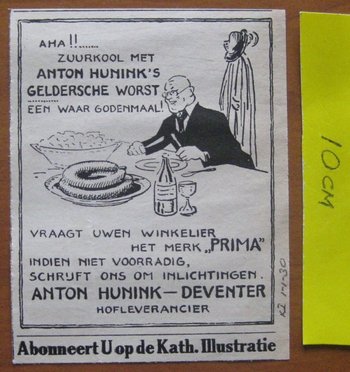 AHA!!
ZUURKOOL MET
ANTON HUNINK'S
GELDERSCHE WORST
EEN WAAR GODENMAAL!
VRAAGT UWEN WINKELIER
HET MERK „PRIMA"
INDIEN NIET VOORRADIG,
SCHRIJFT ONS OM INLICHTINGEN.
ANTON HUNINK — DEVENTER
HOFLEVERANCIER
KI 1-1-30
Abonneert U op de Kath. Illustratie
10CM